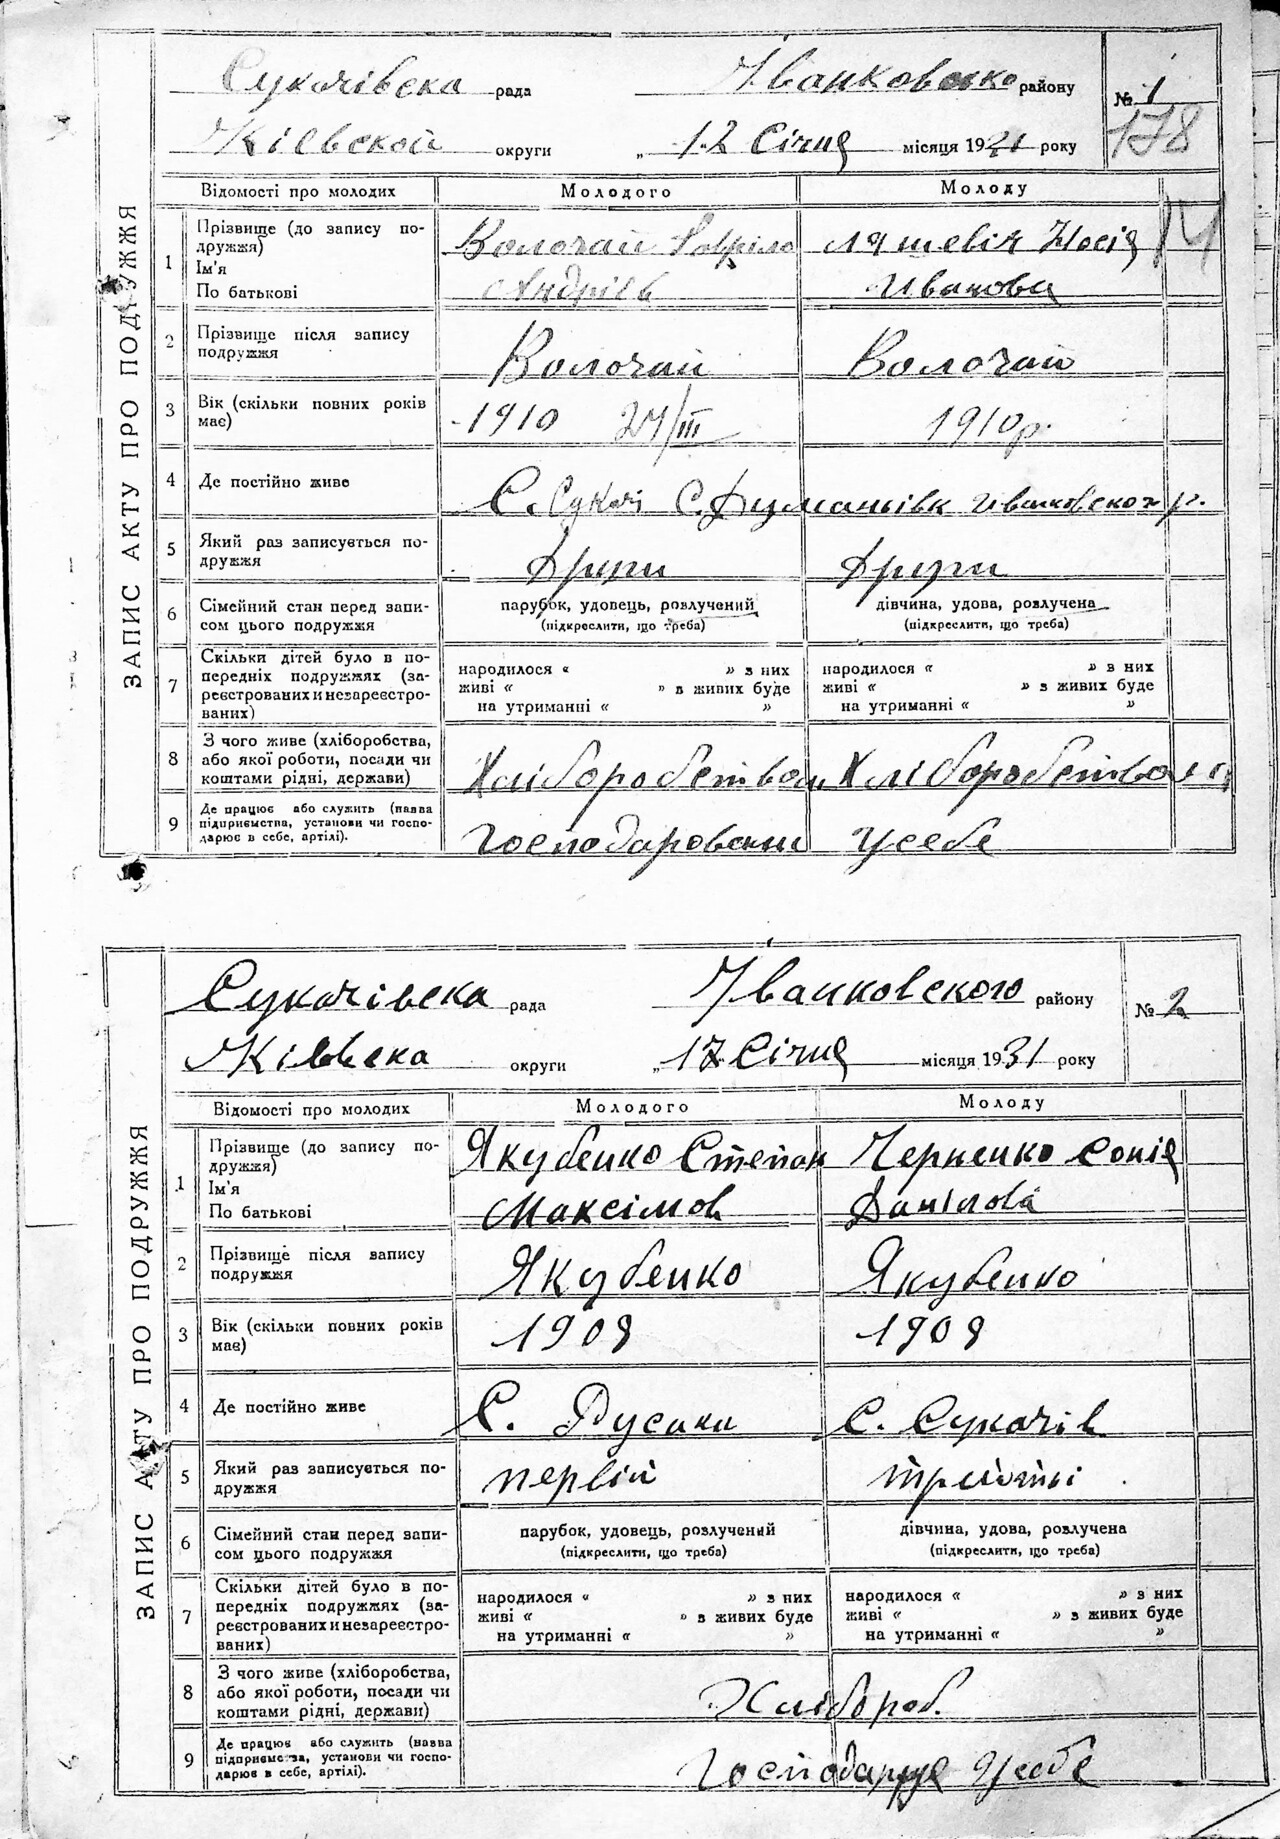 ЗАПИС АКТУ ПРО ПОДРУЖЖЯ
Сукачівска рада Іванковско району № 1
Жіевской округи „ 12 Січня місяця 1931 року 178
Відомості про молодих Молодого Молоду
1 Прізвище (до запису подружжя) Волочай Гавріло Ляшевіч
Ім'я
По батькові Андріев Иванова
2 Прізвище після запису подружжя Волочай Волочай
3 Вік (скільки повних років має) 1910 24/III 1910р.
4 Де постійно живе С. Сукачі С. Думанывк Иванковского р.
5 Який раз записується подружжя Други Други
6 Сімейний стан перед записом цього подружжя парубок, удовець, розлучений дівчина, удова, розлучена
(підкреслити, що треба) (підкреслити, що треба)
7 Скільки дітей було в попередніх подружжях (зареєстрованих и незареєстрованих) народилося « » з них народилося « » з них
живі « » з живих буде живі « » з живих буде
на утриманні « » на утриманні « »
8 З чого живе (хліборобства, або якої роботи, посади чи коштами рідні, держави) Хліборобством Хліборобством
9 Де працює або служить (назва підприємства, установи чи господарює в себе, артілі). Господаровании усебе
ЗАПИС АКТУ ПРО ПОДРУЖЖЯ
Сукачівска рада Іванковского району № 2
Жіввска округи „ 17 Січня місяця 1931 року
Відомості про молодих Молодого Молоду
1 Прізвище (до запису подружжя) Якубенко Степан Черненко Сонія
Ім'я
По батькові Максімов Данілова
2 Прізвище після запису подружжя Якубенко Якубенко
3 Вік (скільки повних років має) 1908 1908
4 Де постійно живе С. Русаки С. Сукачів
5 Який раз записується подружжя первій
6 Сімейний стан перед записом цього подружжя парубок, удовець, розлучений дівчина, удова, розлучена
(підкреслити, що треба) (підкреслити, що треба)
7 Скільки дітей було в попередніх подружжях (зареєстрованих и незареєстрованих) народилося « » з них народилося « » з них
живі « » з живих буде живі « » з живих буде
на утриманні « » на утриманні « »
8 З чого живе (хліборобства, або якої роботи, посади чи коштами рідні, держави) Хлібороб.
9 Де працює або служить (назва підприємства, установи чи господарює в себе, артілі). Господарує Усебе